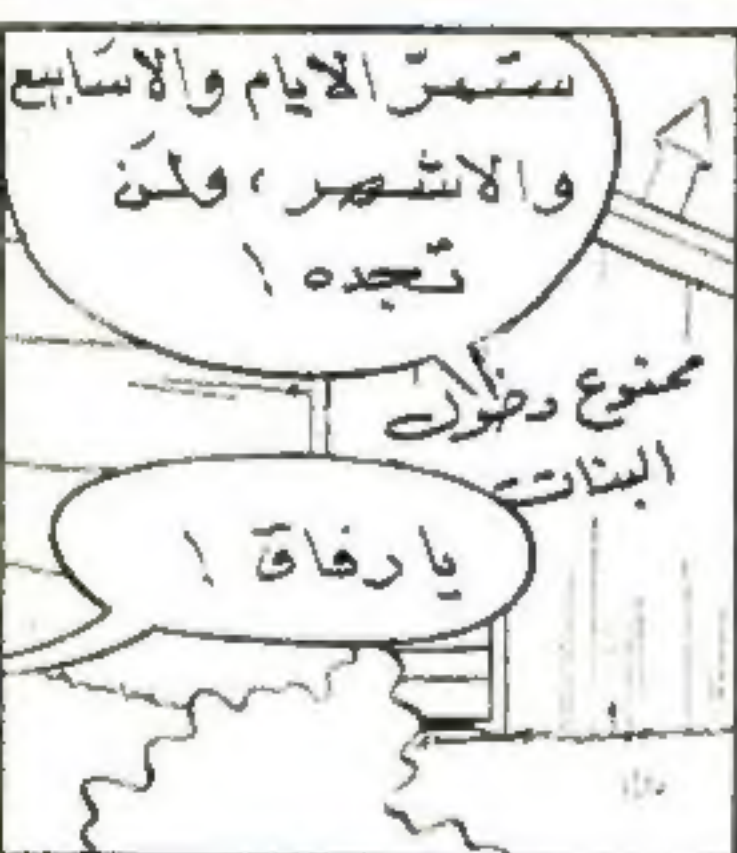 ستمرّ الايام والاسَابيع
والاشهر، ولَن
تجده!
ممنوع دخول
البنات
يا رفاق!